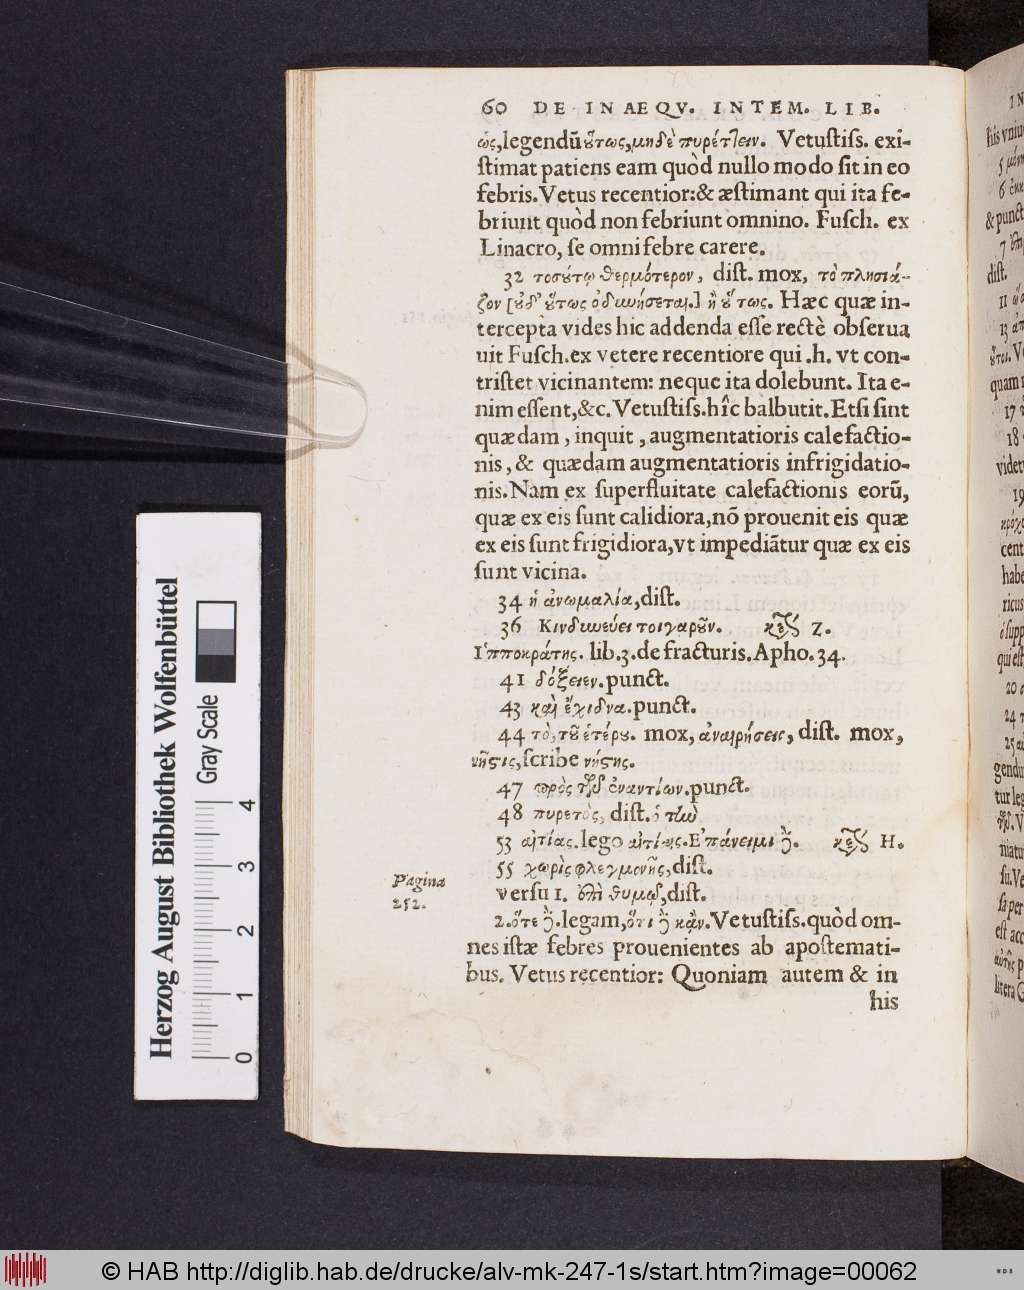 60 DE INAEQV. INTEM. LIB.
ώς, legendũ οὕτως, μηδὲ πυρέττειν. Vetustiſſ. exi-
ſtimat patiens eam quòd nullo modo ſit in eo
febris. Vetus recentior: & æſtimant qui ita fe-
briunt quòd non febriunt omnino. Fuſch. ex
Linacro, ſe omni febre carere.
32 τοσούτῳ θερμότερον, diſt. mox, τὸ πλησιά-
ζον [οὐδ' οὕτως ὀδυνήσεται.] ἢ οὕτως. Hæc quæ in-
tercepta vides hic addenda eſſe rectè obſerua
uit Fuſch. ex vetere recentiore qui .h. vt con-
triſtet vicinantem: neque ita dolebunt. Ita e-
nim eſſent, &c. Vetuſtiſſ. hîc balbutit. Etſi ſint
quædam, inquit, augmentatioris calefactio-
nis, & quædam augmentatioris infrigidatio-
nis. Nam ex ſuperfluitate calefactionis eorũ,
quæ ex eis ſunt calidiora, nõ prouenit eis quæ
ex eis ſunt frigidiora, vt impediãtur quæ ex eis
ſunt vicina.
34 ἡ ἀνωμαλία, diſt.
36 Κινδυνεύει τοιγαροῦν. Z.
Ἱπποκράτης. lib. 3. de fracturis. Apho. 34.
41 δόξειεν. punct.
43 καὶ ἔχιδνα. punct.
44 τὸ, τοῦ ἑτέρου. mox, ἀναιρήσεις, diſt. mox,
νῆστις, ſcribe νήστης.
47 πρὸς τῶν ἐναντίων. punct.
48 πυρετὸς, diſt. ὁ τῷ
53 αἰτίας. lego αἰτίαις. Ἐπάνειμι δ. H.
55 χωρὶς φλεγμονῆς, diſt.
Pagina
252.
verſu 1. ἐπὶ θυμῷ, diſt.
2. ὅτε δ. legam, ὅτι δ κἂν. Vetuſtiſſ. quòd om-
nes iſtæ febres prouenientes ab apoſtemati-
bus. Vetus recentior: Quoniam autem & in
his
Herzog August Bibliothek Wolfenbüttel
Gray Scale
0 1 2 3 4
© HAB http://diglib.hab.de/drucke/alv-mk-247-1s/start.htm?image=00062